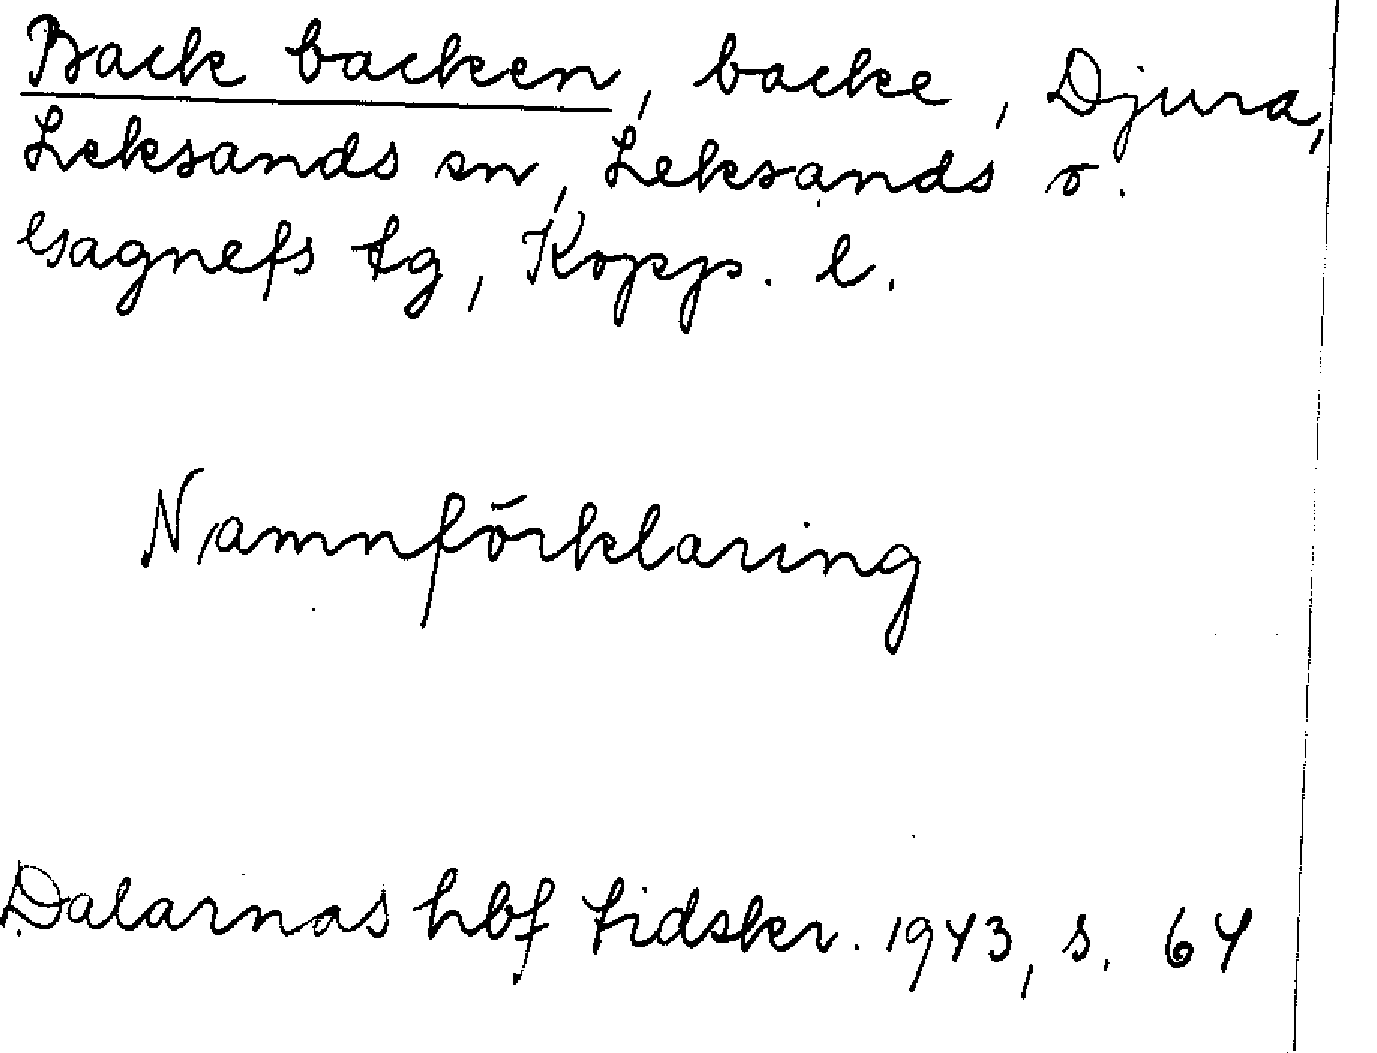 Back backen, backe, Djura,
Leksands sn, Leksands o.
Gagnefs tg, Kopp. l.
Namnförklaring
Dalarnas hbf tidskr. 1943, s. 64